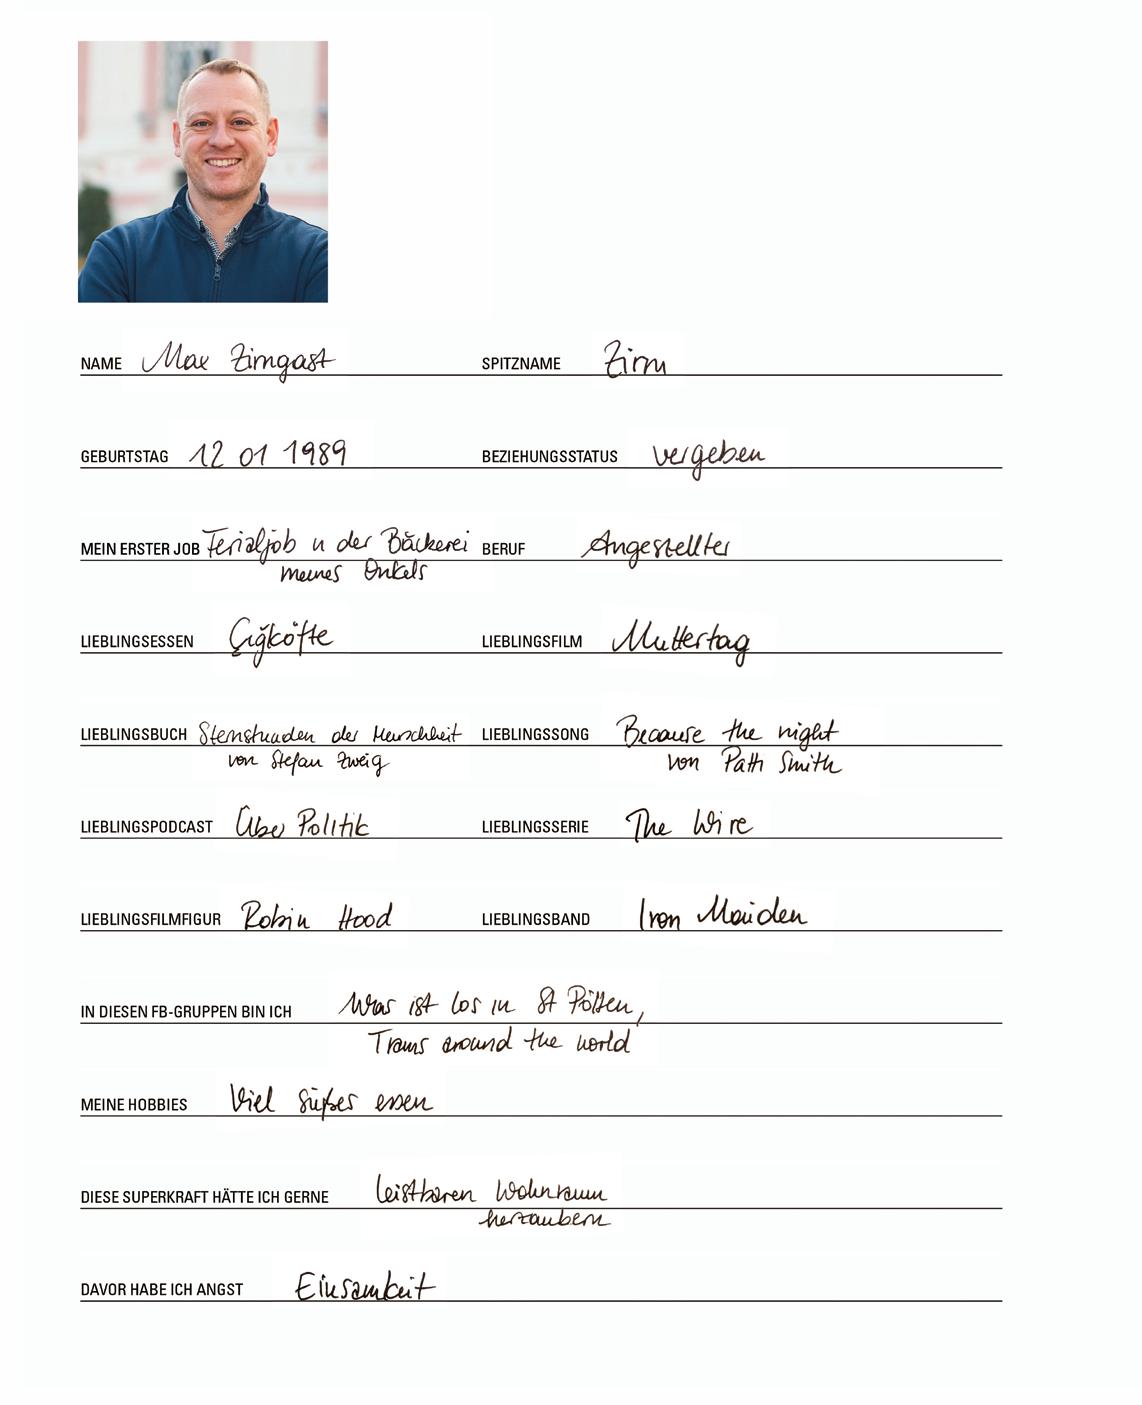 NAME Max Zirngast SPITZNAME Zirn
GEBURTSTAG 12 01 1989 BEZIEHUNGSSTATUS vergeben
MEIN ERSTER JOB Ferialjob in der Bäckerei BERUF Angestellter
meines Onkels
LIEBLINGSESSEN Çiğköfte LIEBLINGSFILM Muttertag
LIEBLINGSBUCH Sternstunden der Menschheit LIEBLINGSSONG Because the night
von Stefan Zweig von Patti Smith
LIEBLINGSPODCAST Über Politik LIEBLINGSSERIE The Wire
LIEBLINGSFILMFIGUR Robin Hood LIEBLINGSBAND Iron Maiden
IN DIESEN FB-GRUPPEN BIN ICH Was ist los in St Pölten,
Trams around the world
MEINE HOBBIES Viel Süßes essen
DIESE SUPERKRAFT HÄTTE ICH GERNE leistbaren Wohnraum
herzaubern
DAVOR HABE ICH ANGST Einsamkeit